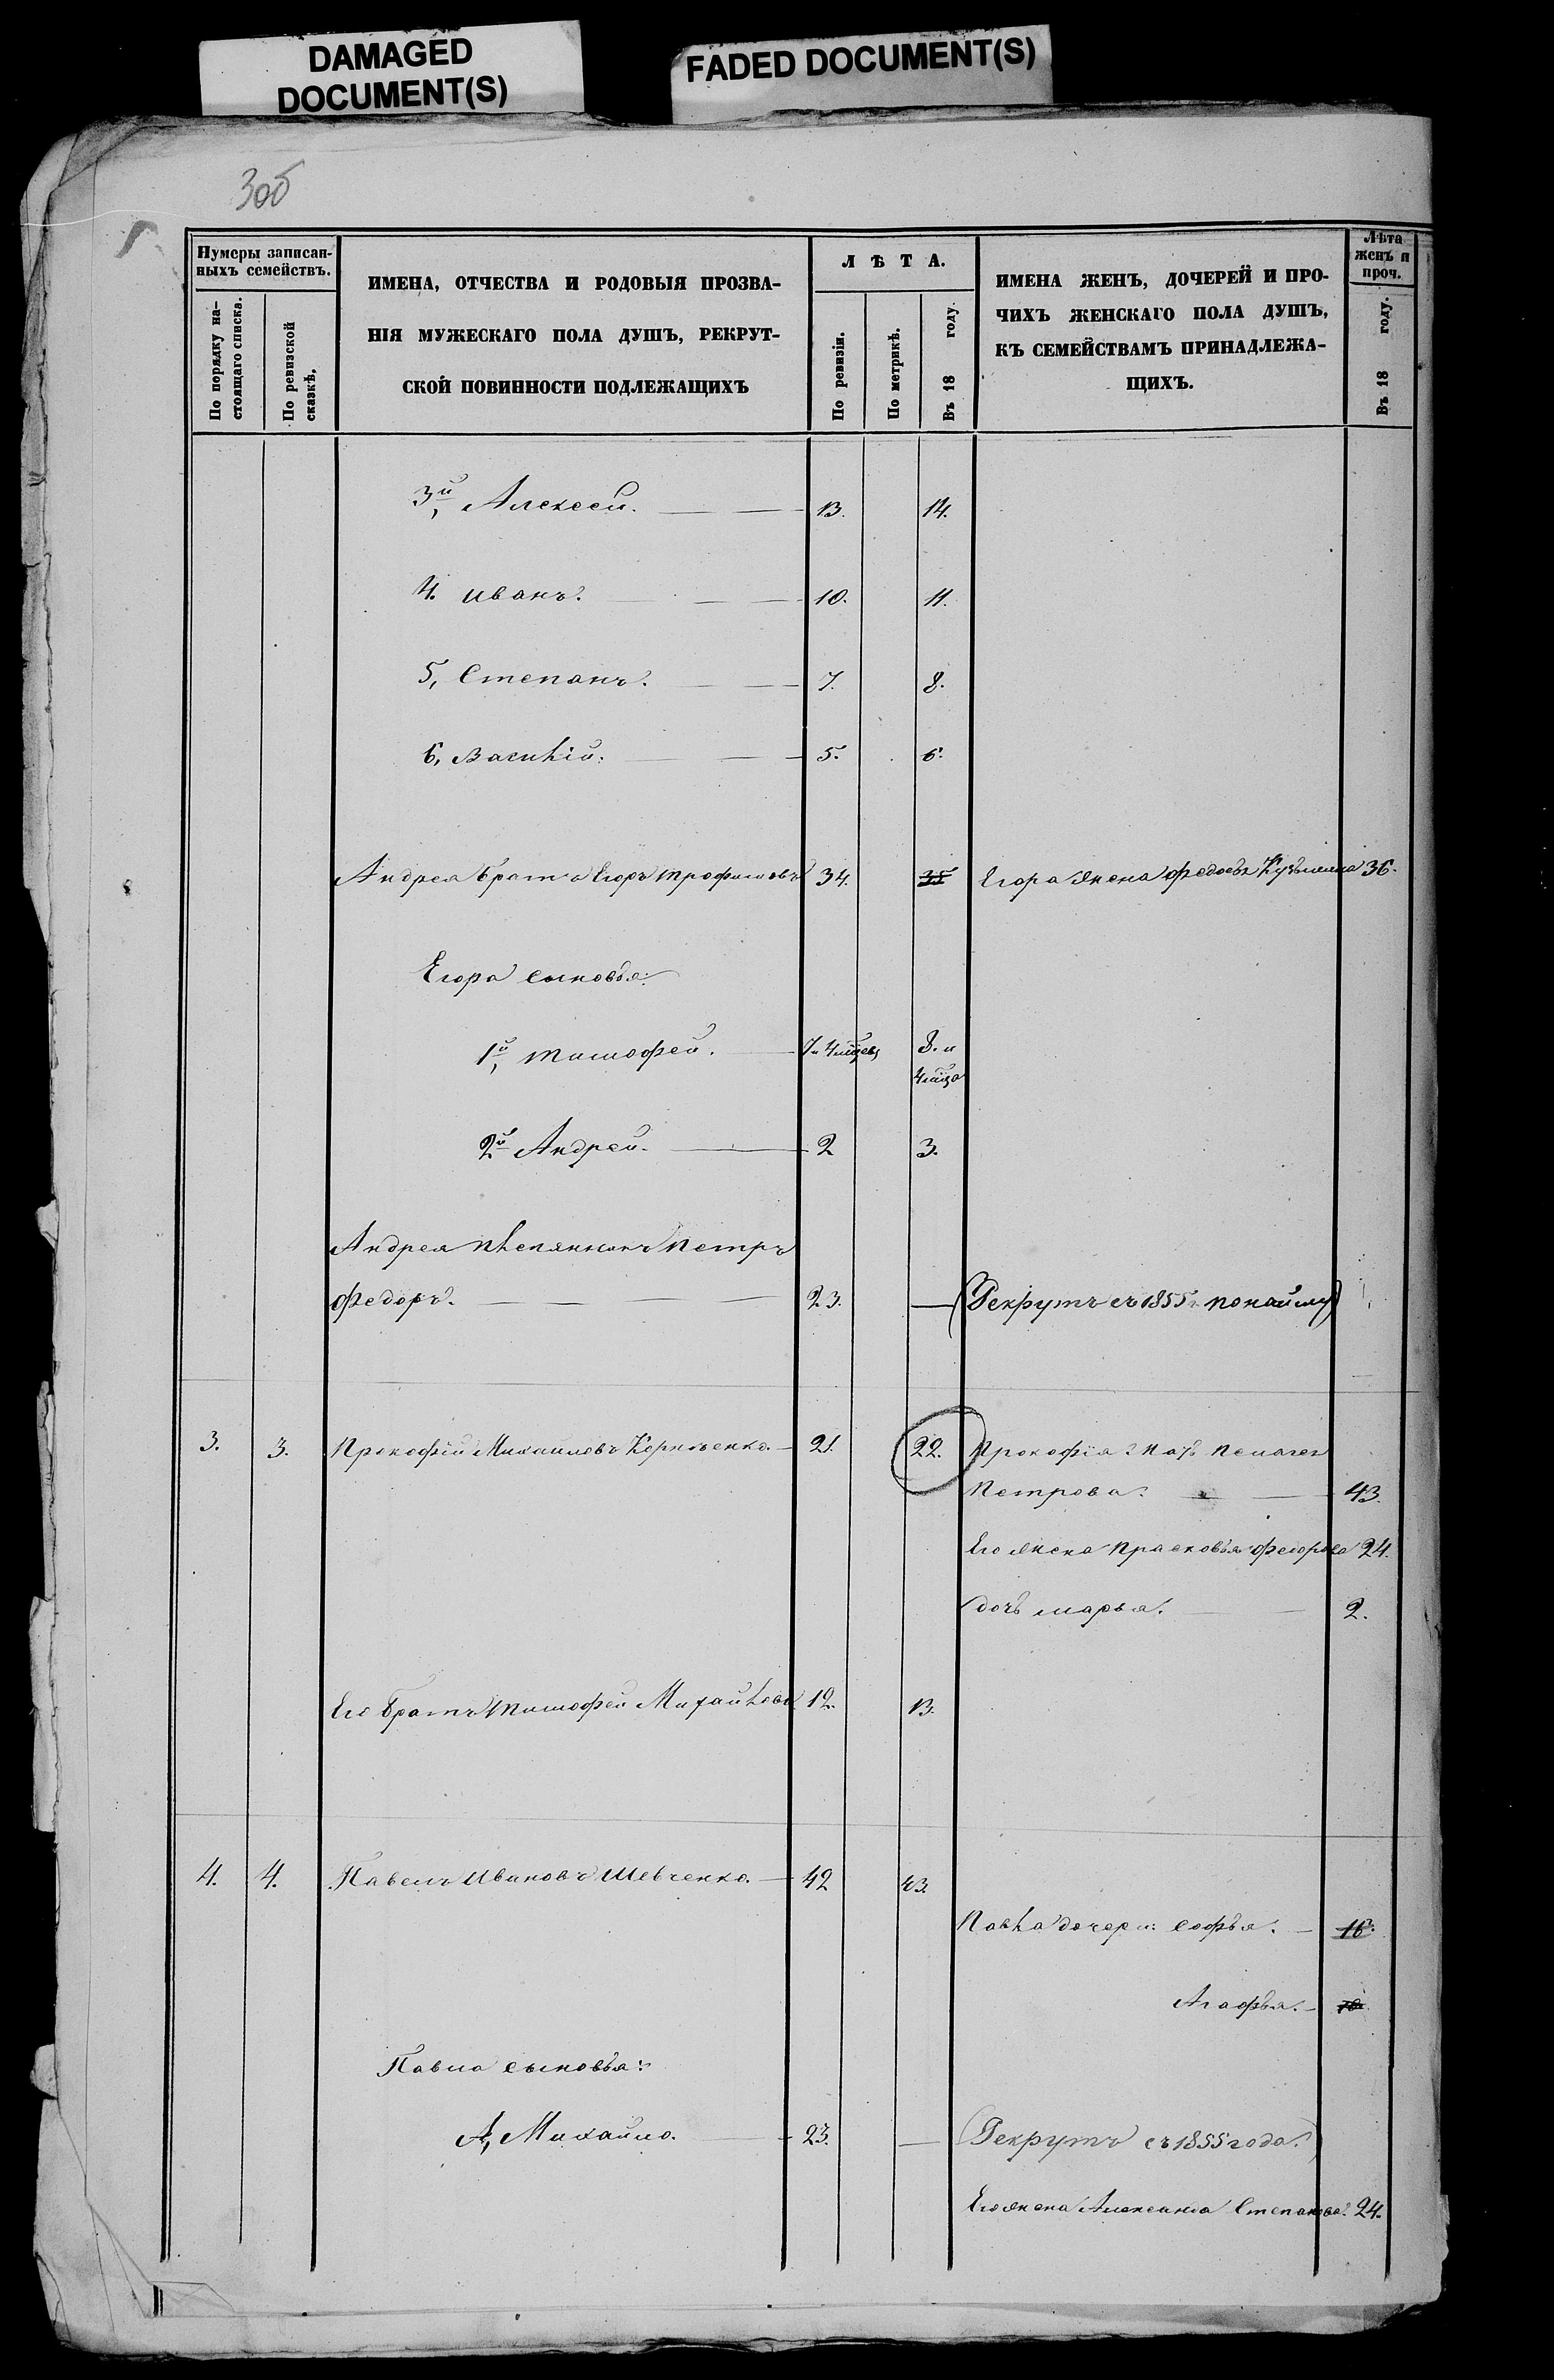 DAMAGED
DOCUMENT(S)
FADED DOCUMENT(S)
3об
Нумеры записан-
ныхъ семействъ.
По порядку на-
стоящаго списка.
По ревизской
сказкѣ.
ИМЕНА, ОТЧЕСТВА И РОДОВЫЯ ПРОЗВА-
НІЯ МУЖЕСКАГО ПОЛА ДУШЪ, РЕКРУТ-
СКОЙ ПОВИННОСТИ ПОДЛЕЖАЩИХЪ
ЛѢТА.
По ревизіи.
По метрикѣ.
Въ 18 году.
ИМЕНА ЖЕНЪ, ДОЧЕРЕЙ И ПРО-
ЧИХЪ ЖЕНСКАГО ПОЛА ДУШЪ,
КЪ СЕМЕЙСТВАМЪ ПРИНАДЛЕЖА-
ЩИХЪ.
Лѣта
женъ и
проч.
Въ 18 году.
3й, Алексей. 13. 14.
4. Иванъ. 10. 11.
5, Степанъ. 7. 8.
6, Василій. 5. 6.
Андрея братъ Егоръ Трофимовъ 34. 35 Егора жена Федосья Кузьмина 36.
Егора сыновья:
1й, Тимофей. 7 и 4 мѣсец 8. и
4 мѣца
2й Андрей. 2 3.
Андрея племянникъ Петръ
Федоръ. 23. — (Рекрутъ съ 1855 г. по найму)
3. 3. Прокофій Михаиловъ Корниенко. 21. 22. Прокофія мать Пелагея
Петрова. 43.
Его жена Прасковья Федорова 24.
дочь Марья. 2.
Его братъ Тимофей Михайловъ 12. 13.
4. 4. Павелъ Ивановъ Шевченко. 42 43.
Павла дочери: Софья. 16.
Агафья.
Павла сыновья:
Михайло. 23. — (Рекрутъ съ 1855 года.)
Его жена Степанова 24.